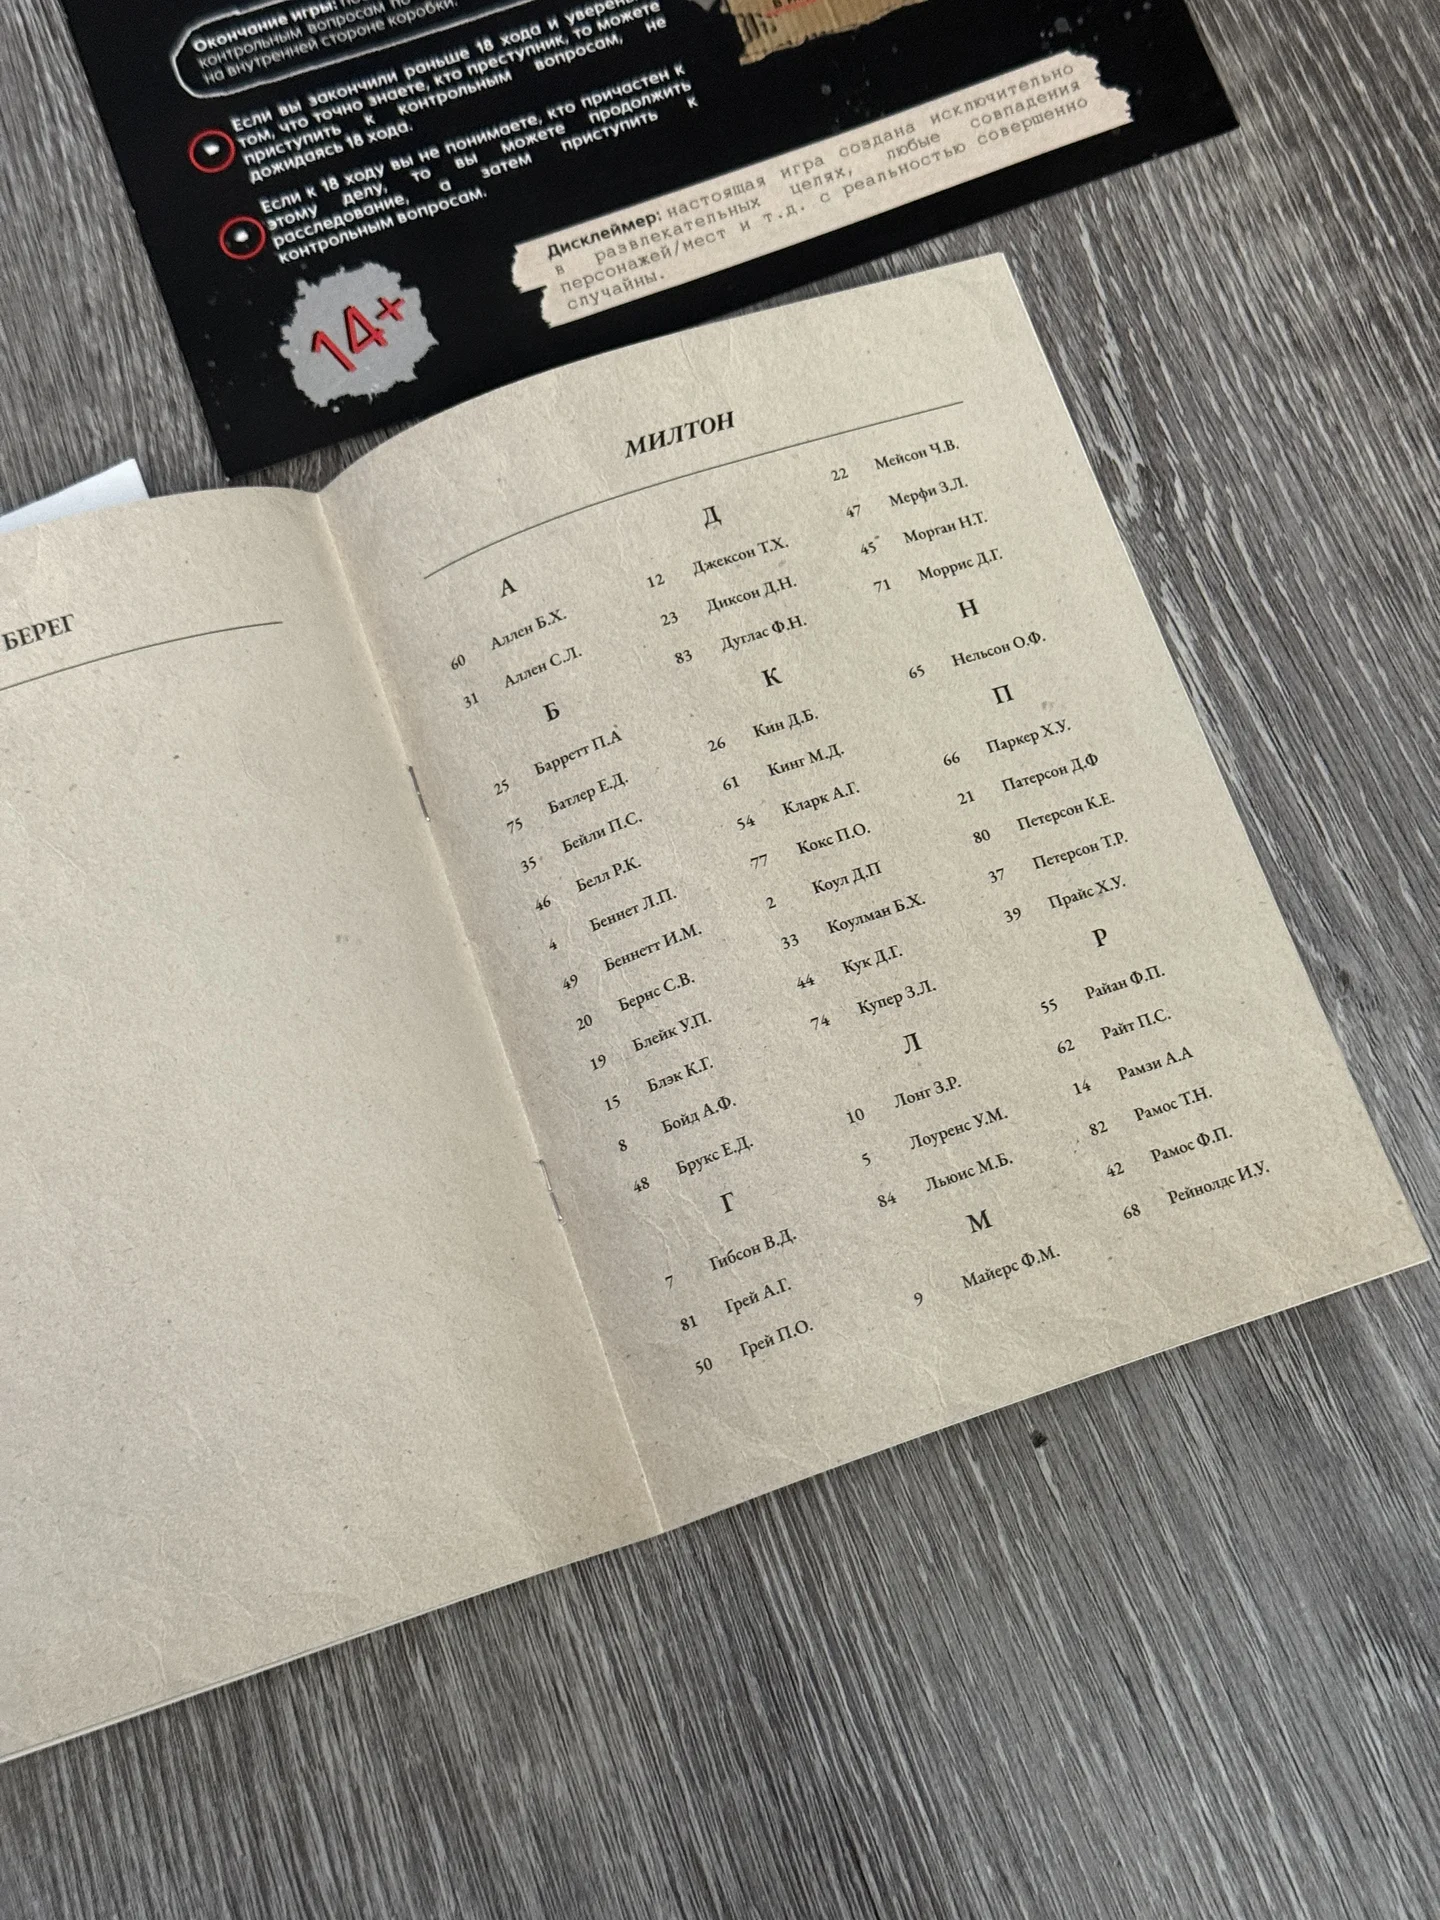 Окончание игры:
контрольным вопросам
на внутренней стороне коробки.
Если вы закончили раньше 18 хода и уверены
том, что точно знаете, кто преступник, то можете
приступить к контрольным вопросам, не
дожидаясь 18 хода.
Если к 18 ходу вы не понимаете, кто причастен к
этому делу, то вы можете продолжить
расследование, а затем приступить к
контрольным вопросам.
14+
Дисклеймер: настоящая игра создана исключительно
в развлекательных целях, любые совпадения
персонажей/мест и т.д. с реальностью совершенно
случайны.
БЕРЕГ
МИЛТОН
А
60 Аллен Б.Х.
31 Аллен С.Л.
Б
25 Барретт П.А
75 Батлер Е.Д.
35 Бейли П.С.
46 Белл Р.К.
4 Беннет Л.П.
49 Беннетт И.М.
20 Бернс С.В.
19 Блейк У.П.
15 Блэк К.Г.
8 Бойд А.Ф.
48 Брукс Е.Д.
Г
7 Гибсон В.Д.
81 Грей А.Г.
50 Грей П.О.
Д
12 Джексон Т.Х.
23 Диксон Д.Н.
83 Дуглас Ф.Н.
К
26 Кин Д.Б.
61 Кинг М.Д.
54 Кларк А.Г.
77 Кокс П.О.
2 Коул Д.П
33 Коулман Б.Х.
44 Кук Д.Г.
74 Купер З.Л.
Л
10 Лонг З.Р.
5 Лоуренс У.М.
84 Льюис М.Б.
М
9 Майерс Ф.М.
22 Мейсон Ч.В.
47 Мерфи З.Л.
45 Морган Н.Т.
71 Моррис Д.Г.
Н
65 Нельсон О.Ф.
П
66 Паркер Х.У.
21 Патерсон Д.Ф
80 Петерсон К.Е.
37 Петерсон Т.Р.
39 Прайс Х.У.
Р
55 Райан Ф.П.
62 Райт П.С.
14 Рамзи А.А
82 Рамос Т.Н.
42 Рамос Ф.П.
68 Рейнолдс И.У.